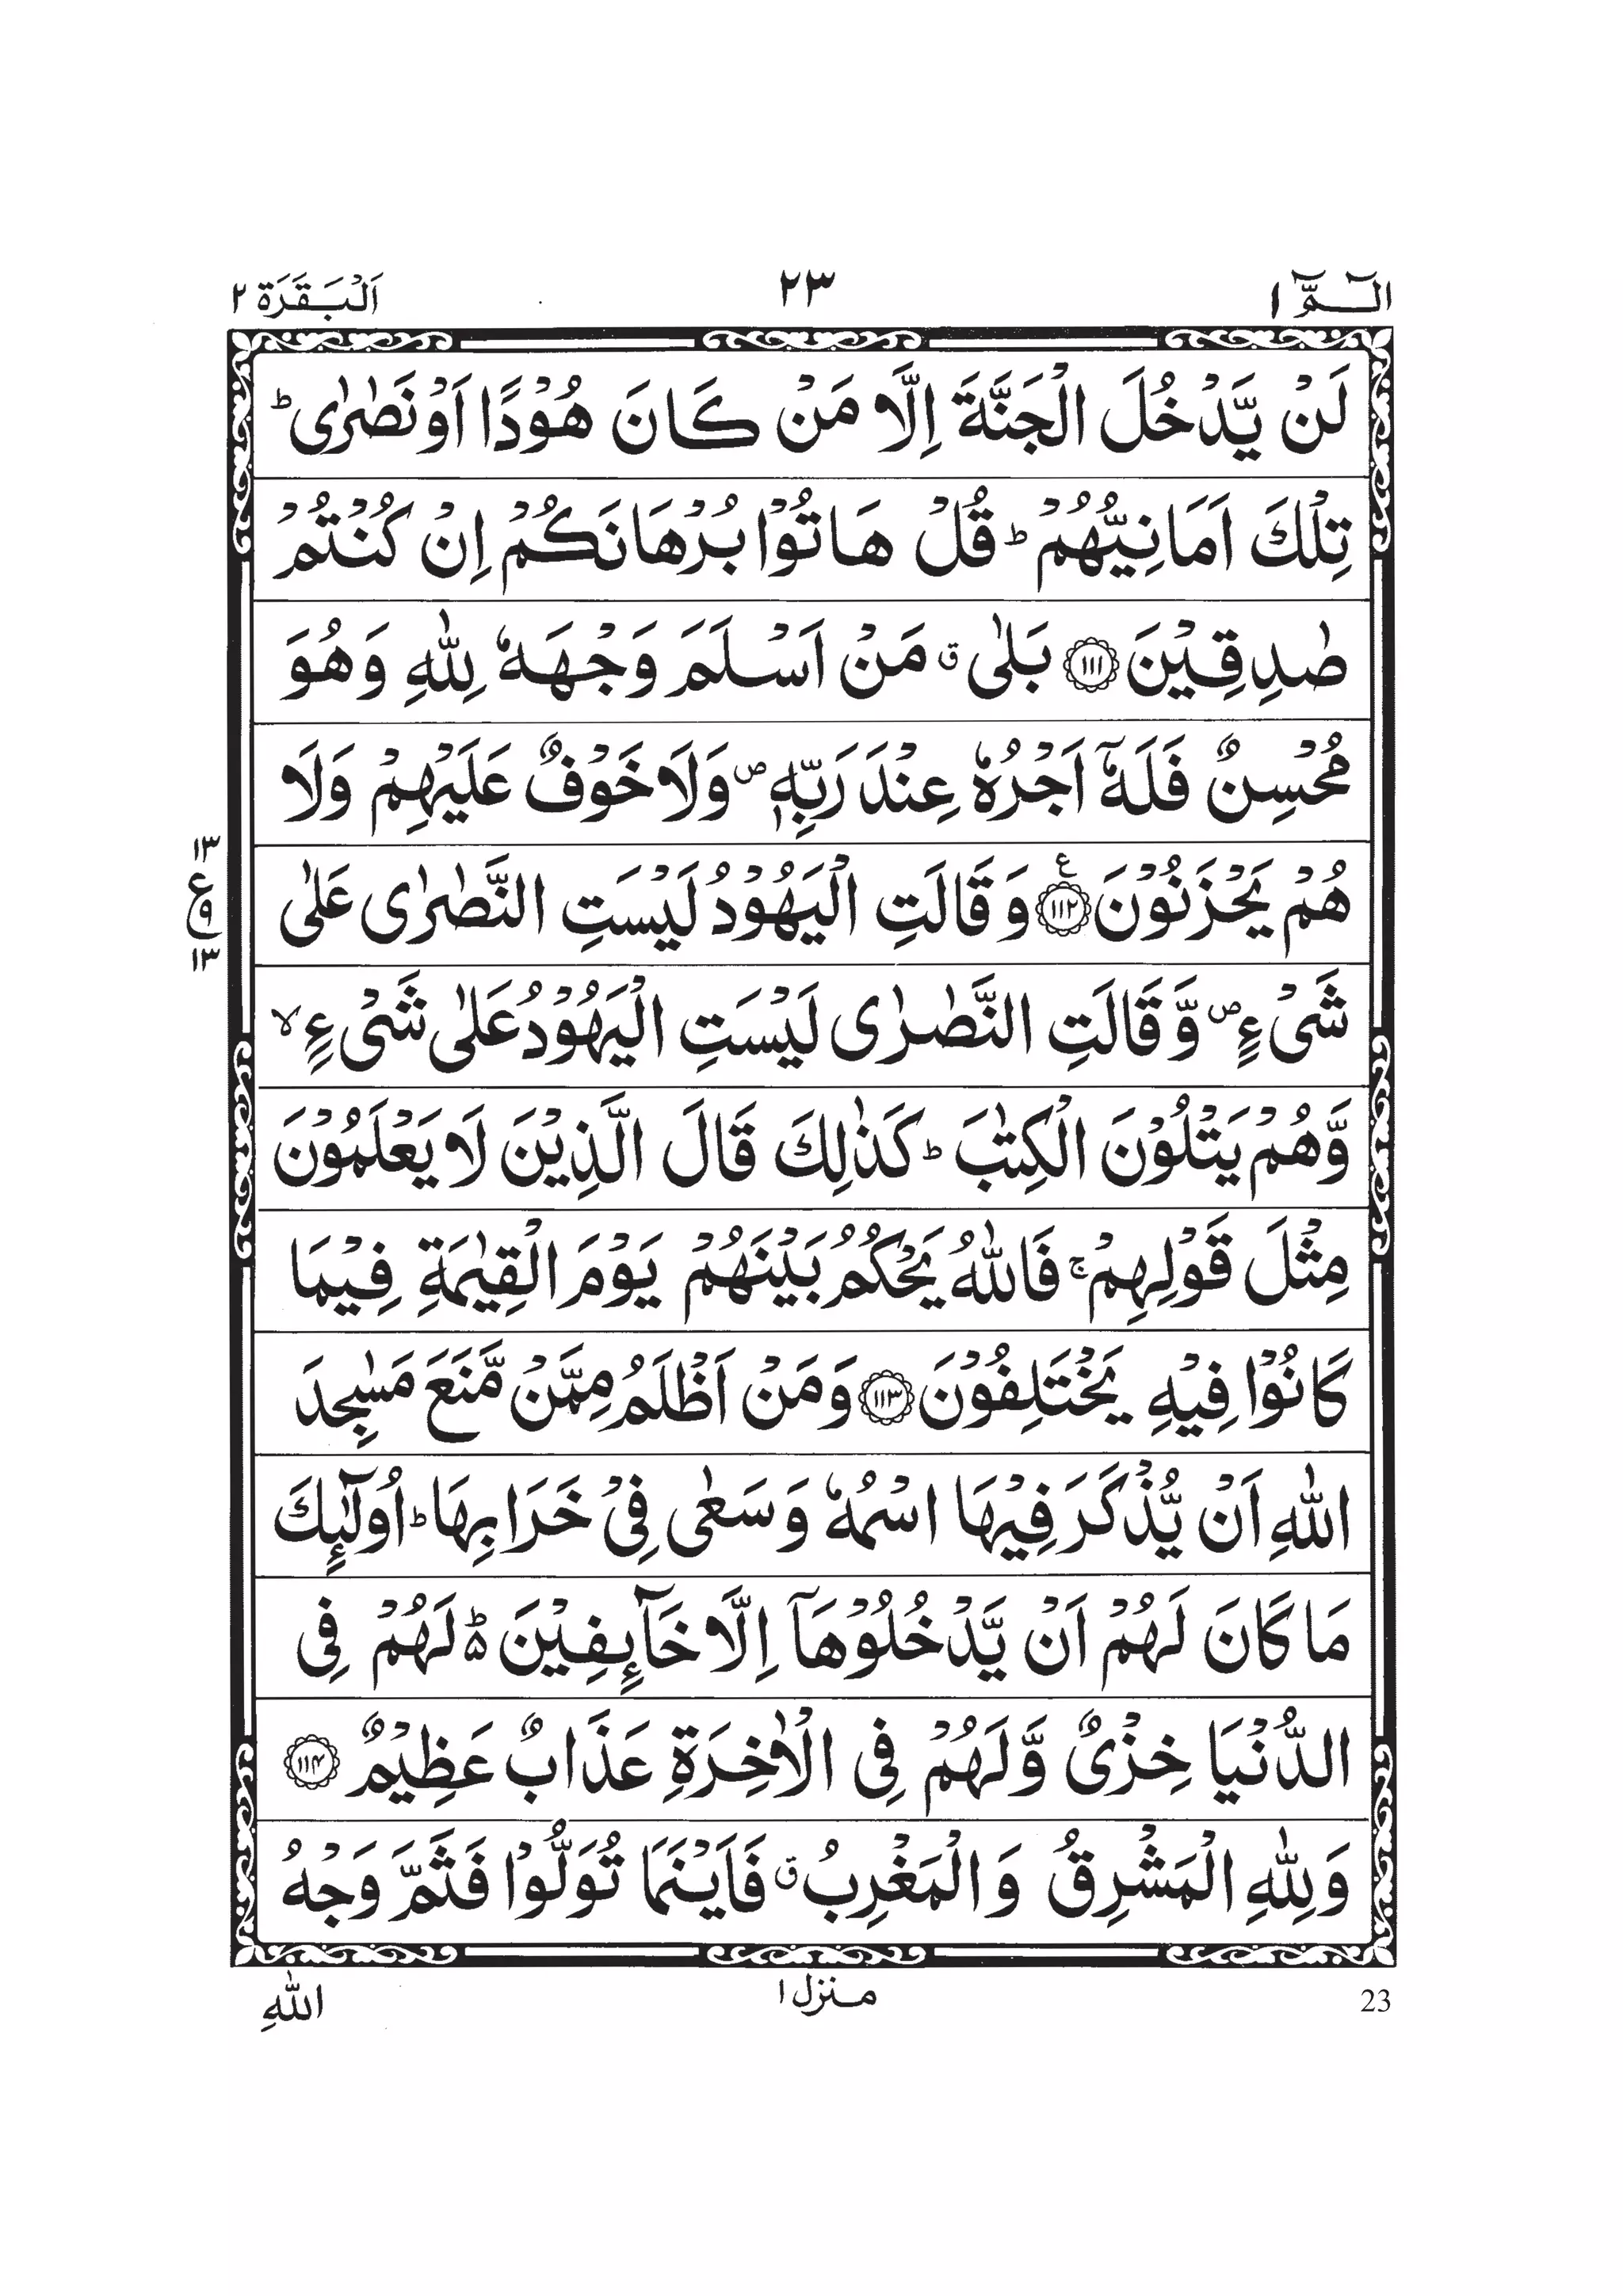 الٓـمّٓ ١ ٢٣ اَلْبَـقَرَة ٢
لَنْ يَّدْخُلَ الْجَنَّةَ اِلَّا مَنْ كَانَ هُوْدًا اَوْ نَصٰرٰى ؕ
تِلْكَ اَمَانِيُّهُمْ ؕ قُلْ هَاتُوْا بُرْهَانَكُمْ اِنْ كُنْتُمْ
صٰدِقِيْنَ ۝١١١ بَلٰى ۗ مَنْ اَسْلَمَ وَجْهَهٗ لِلّٰهِ وَهُوَ
مُحْسِنٌ فَلَهٗۤ اَجْرُهٗ عِنْدَ رَبِّهٖ ۪ وَلَا خَوْفٌ عَلَيْهِمْ وَلَا
هُمْ يَحْزَنُوْنَ ۝١١٢ ع وَقَالَتِ الْيَهُوْدُ لَيْسَتِ النَّصٰرٰى عَلٰى
١٣ ع ٩ ١٣
شَىْءٍ ۪ وَّقَالَتِ النَّصٰرٰى لَيْسَتِ الْيَهُوْدُ عَلٰى شَىْءٍ ۙ
وَّهُمْ يَتْلُوْنَ الْكِتٰبَ ؕ كَذٰلِكَ قَالَ الَّذِيْنَ لَا يَعْلَمُوْنَ
مِثْلَ قَوْلِهِمْ ۚ فَاللّٰهُ يَحْكُمُ بَيْنَهُمْ يَوْمَ الْقِيٰمَةِ فِيْمَا
كَانُوْا فِيْهِ يَخْتَلِفُوْنَ ۝١١٣ وَمَنْ اَظْلَمُ مِمَّنْ مَّنَعَ مَسٰجِدَ
اللّٰهِ اَنْ يُّذْكَرَ فِيْهَا اسْمُهٗ وَسَعٰى فِىْ خَرَابِهَا ؕ اُولٰٓئِكَ
مَا كَانَ لَهُمْ اَنْ يَّدْخُلُوْهَاۤ اِلَّا خَآئِفِيْنَ ۬ؕ لَهُمْ فِى
الدُّنْيَا خِزْىٌ وَّلَهُمْ فِى الْاٰخِرَةِ عَذَابٌ عَظِيْمٌ ۝١١٤
وَلِلّٰهِ الْمَشْرِقُ وَالْمَغْرِبُ ۗ فَاَيْنَمَا تُوَلُّوْا فَثَمَّ وَجْهُ
23 مـنزل ١ اللّٰهِ